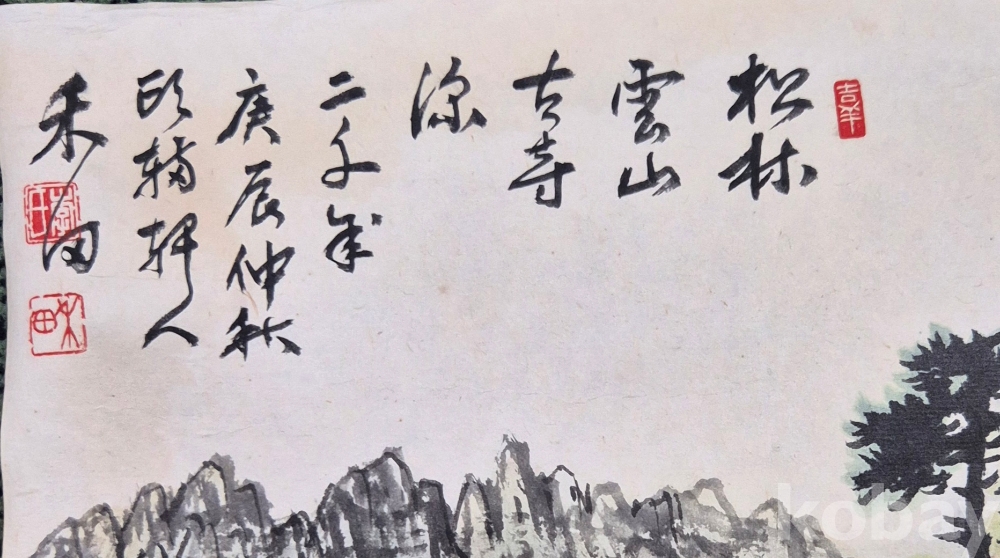 吉羊
松林
雲山
古寺
深
二千年
庚辰仲秋
軒人
禾田
禾田
kobay